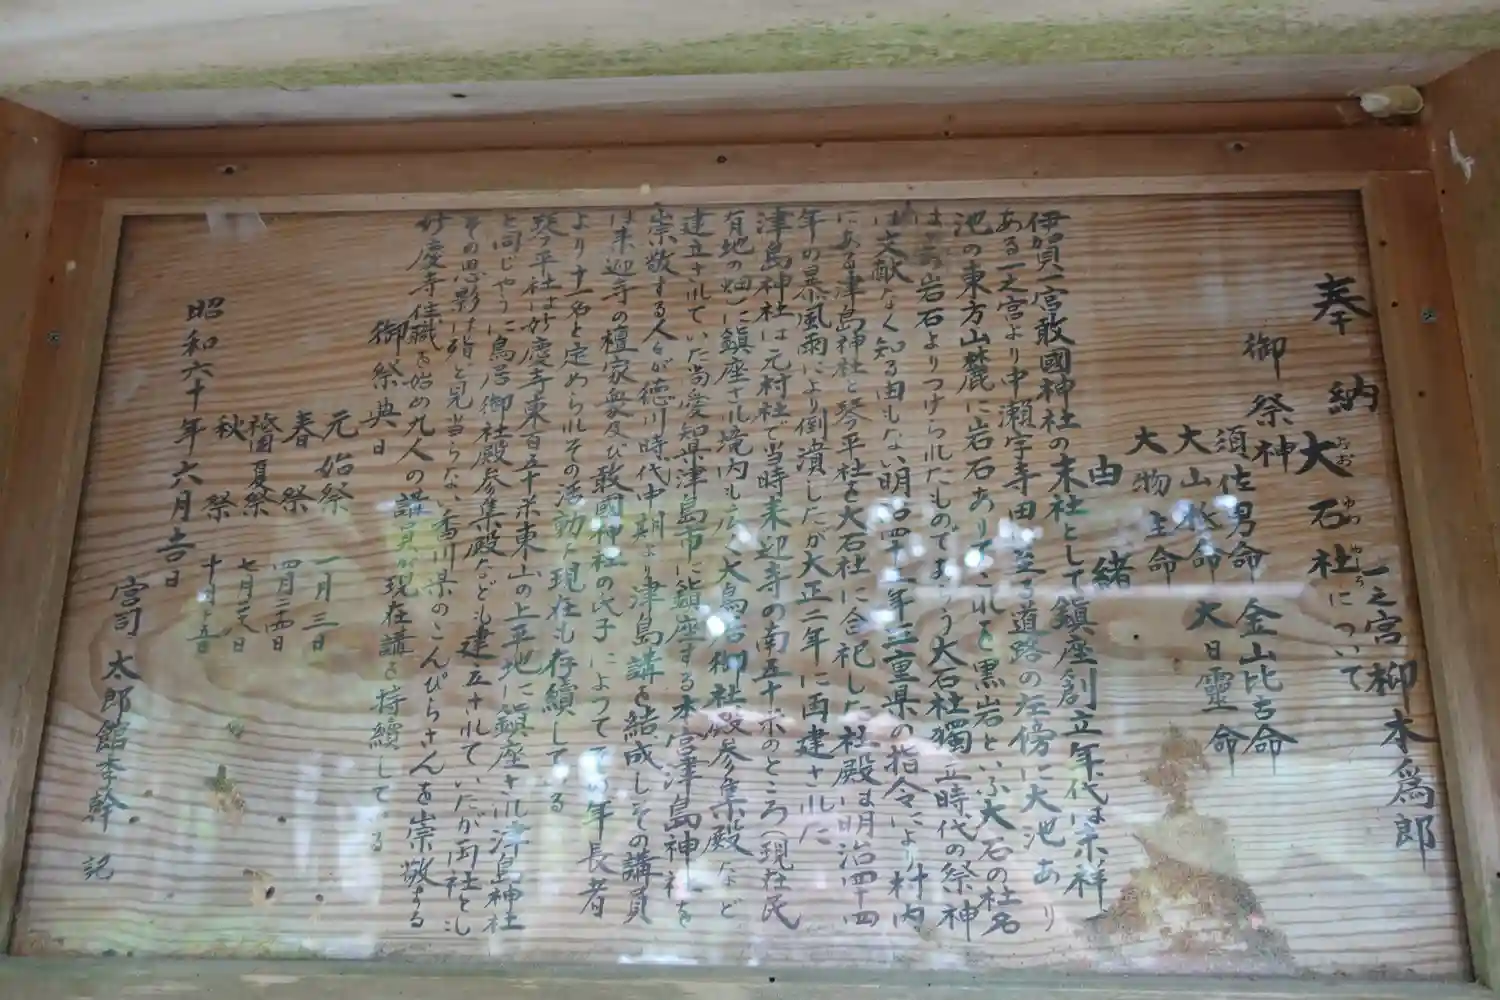 奉納 大石社について
一之宮 柳本為郎
御祭神
須佐男命 金山比古命
大山祇命 大日靈命
大物主命
由緒
伊賀一宮敢國神社の末社として鎮座創立年代は不祥
ある一之宮より中瀬字寺田に至る道路の左傍に大池あり
池の東方山麓に岩石ありてこれを黒岩といふ大石の社名
は 岩石よりつけられたものであろう大石社獨立時代の祭神
は文献なく知る由もない明治四十 年三重県の指令により村内
にある津島神社と琴平社を大石社に合祀した社殿は明治四十四
年の暴風雨により倒潰したが大正二年に再建された
津島神社は元村社で当時来迎寺の南五十米のところ(現在民
有地の畑)に鎮座され境内も広く大鳥居御社殿参集殿など
建立されていた尚愛知県津島市に鎮座する本宮津島神社を
崇敬する人々が徳川時代中期より津島講を結成しその講員
は来迎寺の檀家衆及び敢國神社の氏子によつて 年長者
より十一名と定められその活動は現在も存續してる
琴平社は妙慶寺東百五十米東山の上平地に鎮座され津島神社
と同じやうに鳥居御社殿参集殿なども建立されていたが両社とも
その思影は殆ど見当らない香川県のこんぴらさんを崇敬する
妙慶寺住職を始め九人の講員が現在講を持續してる
御祭典日
元始祭 一月三日
春祭 四月二四日
祇園夏祭 七月 日
秋祭 十月 五日
昭和六十年六月吉日
宮司 太郎館季幹 記